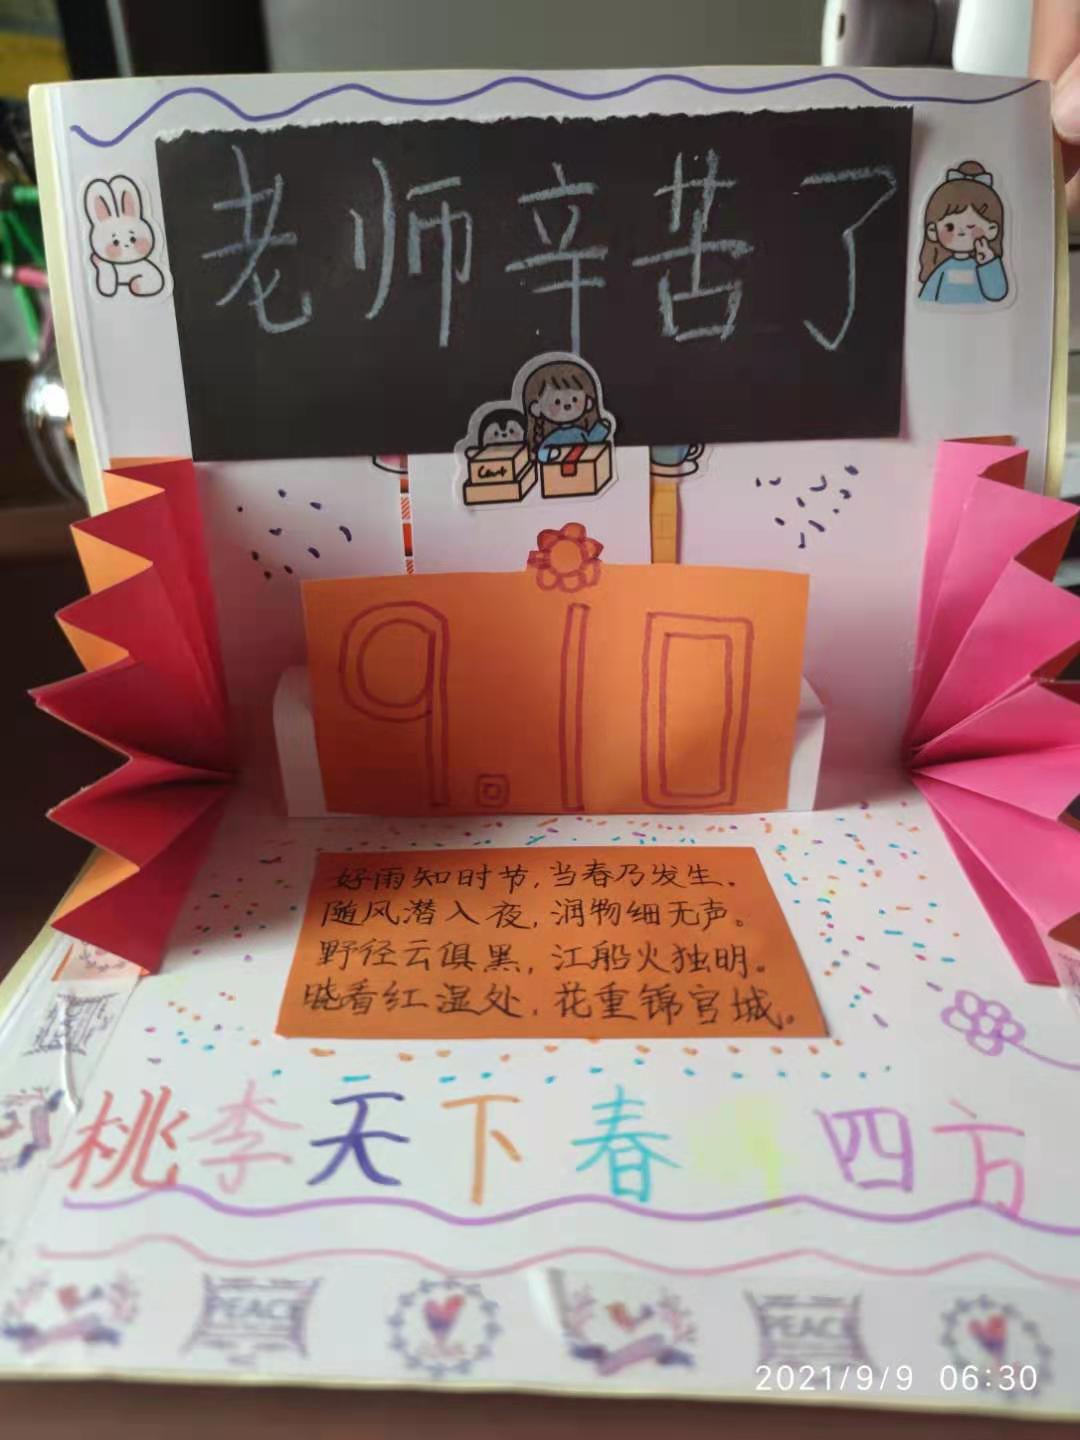 老师辛苦了
Cart
9.10
好雨知时节,当春乃发生。
随风潜入夜,润物细无声。
野径云俱黑,江船火独明。
晓看红湿处,花重锦官城。
桃李天下春 四方
PEACE PEACE
2021/9/9 06:30